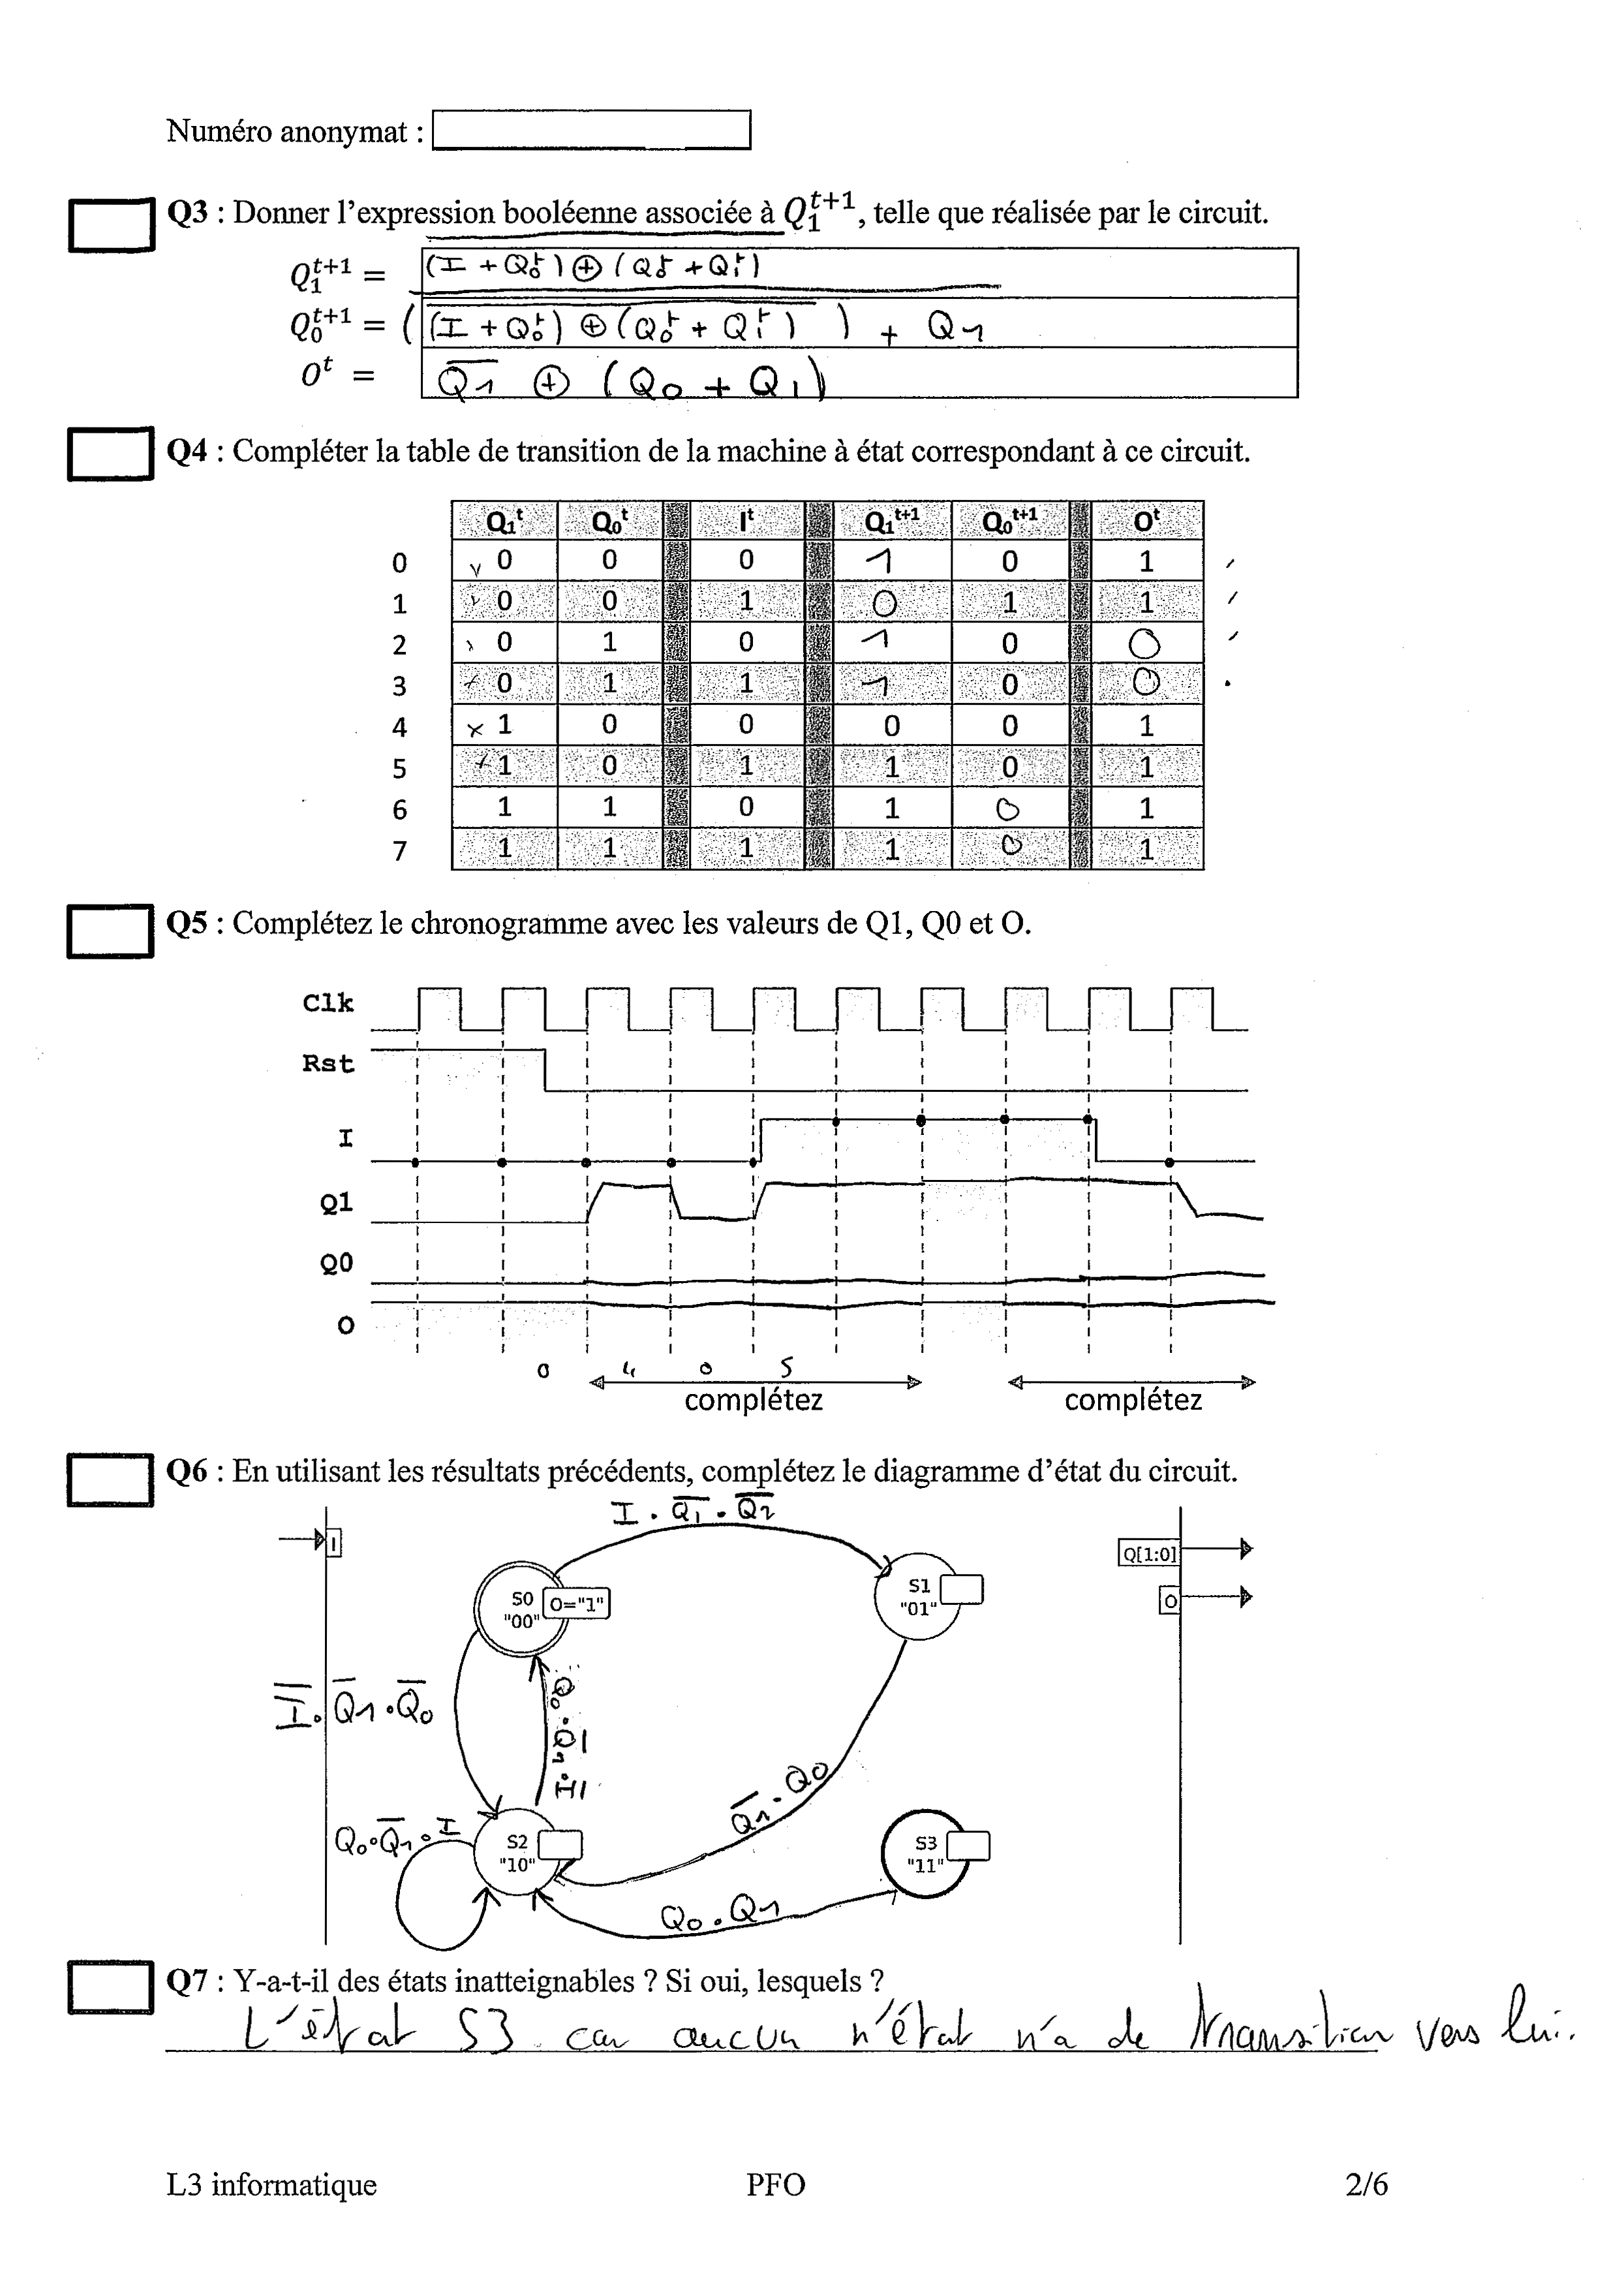 Numéro anonymat :
Q3 : Donner l'expression booléenne associée à Q₁ᵗ⁺¹, telle que réalisée par le circuit.
Q₁ᵗ⁺¹ = (I + Q₀ᵗ) ⊕ (Q₀ᵗ + Q₁ᵗ)
Q₀ᵗ⁺¹ = ((I + Q₀ᵗ) ⊕ (Q₀ᵗ + Q₁ᵗ)) + Q1
Oᵗ = Q̅1̅ ⊕ (Q0 + Q1)
Q4 : Compléter la table de transition de la machine à état correspondant à ce circuit.
Q₁ᵗ Q₀ᵗ Iᵗ Q₁ᵗ⁺¹ Q₀ᵗ⁺¹ Oᵗ
0 0 0 0 1 0 1
1 0 0 1 0 1 1
2 0 1 0 1 0 0
3 0 1 1 1 0 0
4 1 0 0 0 0 1
5 1 0 1 1 0 1
6 1 1 0 1 0 1
7 1 1 1 1 0 1
Q5 : Complétez le chronogramme avec les valeurs de Q1, Q0 et O.
Clk
Rst
I
Q1
Q0
O
0 4 0 5
complétez complétez
Q6 : En utilisant les résultats précédents, complétez le diagramme d'état du circuit.
I . Q̅1̅ . Q̅2̅
I Q[1:0]
S0 "00" O="1" S1 "01" O
I̅ . Q̅1 . Q̅0
Q0 . Q̅1̅ . I̅
Q̅1 . Q0
Q0 . Q̅1 . I
S2 "10" S3 "11"
Q0 . Q1
Q7 : Y-a-t-il des états inatteignables ? Si oui, lesquels ?
L'état S3 car aucun n'état n'a de transition vers lui.
L3 informatique PFO 2/6